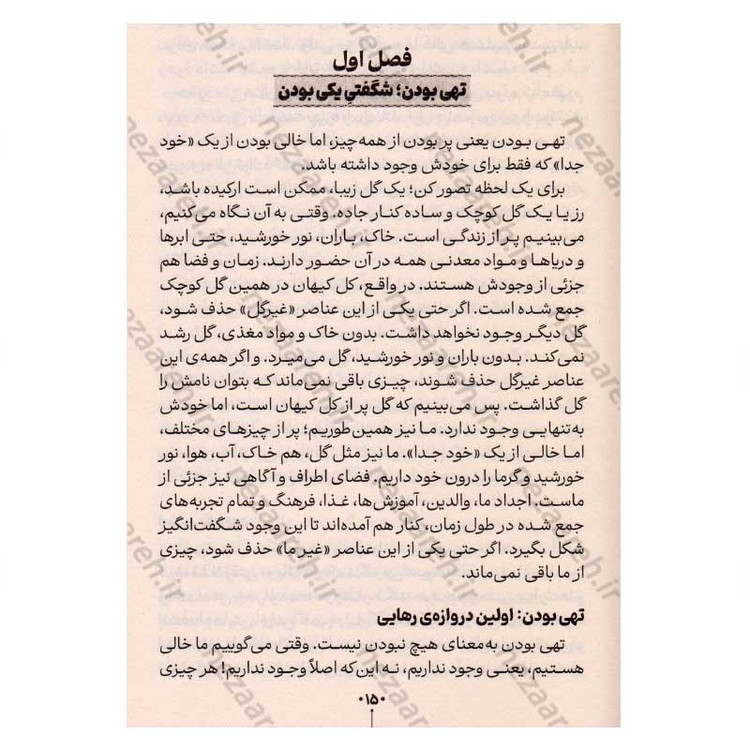 فصل اول
تهی بودن؛ شگفتیِ یکی بودن
تهی بودن یعنی پر بودن از همه چیز، اما خالی بودن از یک «خود
جدا» که فقط برای خودش وجود داشته باشد.
برای یک لحظه تصور کن؛ یک گل زیبا، ممکن است ارکیده باشد،
رز یا یک گل کوچک و ساده کنار جاده. وقتی به آن نگاه می‌کنیم،
می‌بینیم پر از زندگی است. خاک، باران، نور خورشید، حتی ابرها
و دریاها و مواد معدنی همه در آن حضور دارند. زمان و فضا هم
جزئی از وجودش هستند. در واقع، کل کیهان در همین گل کوچک
جمع شده است. اگر حتی یکی از این عناصر «غیرگل» حذف شود،
گل دیگر وجود نخواهد داشت. بدون خاک و مواد مغذی، گل رشد
نمی‌کند. بدون باران و نور خورشید، گل می‌میرد. و اگر همه‌ی این
عناصر غیرگل حذف شوند، چیزی باقی نمی‌ماند که بتوان نامش را
گل گذاشت. پس می‌بینیم که گل پر از کل کیهان است، اما خودش
به‌تنهایی وجود ندارد. ما نیز همین‌طوریم؛ پر از چیزهای مختلف،
اما خالی از یک «خود جدا». ما نیز مثل گل، هم خاک، آب، هوا، نور
خورشید و گرما را درون خود داریم. فضای اطراف و آگاهی نیز جزئی از
ماست. اجداد ما، والدین، آموزش‌ها، غذا، فرهنگ و تمام تجربه‌های
جمع شده در طول زمان، کنار هم آمده‌اند تا این وجود شگفت‌انگیز
شکل بگیرد. اگر حتی یکی از این عناصر «غیر ما» حذف شود، چیزی
از ما باقی نمی‌ماند.
تهی بودن: اولین دروازه‌ی رهایی
تهی بودن به‌معنای هیچ نبودن نیست. وقتی می‌گوییم ما خالی
هستیم، یعنی وجود داریم، نه این‌که اصلاً وجود نداریم! هر چیزی
۱۵۰
nezaareh.ir